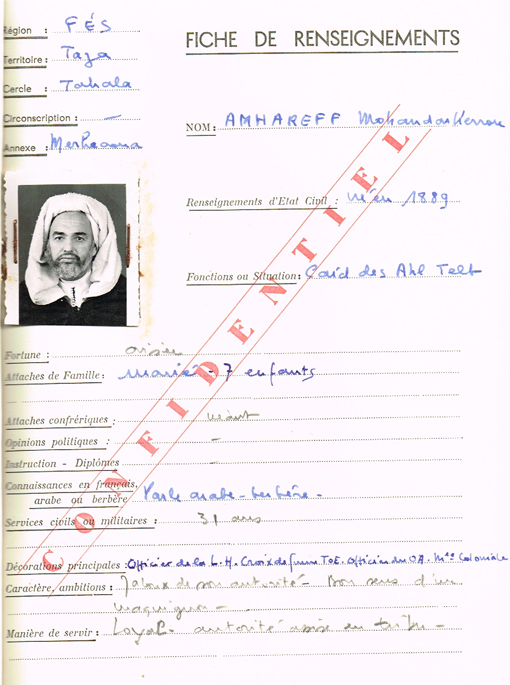 Région : FÉS
FICHE DE RENSEIGNEMENTS
Territoire : Taza
Cercle : Tahala
Circonscription : —
NOM : AMHAREFF Mohand
Annexe :
Renseignements d'Etat Civil : né en 1889
Fonctions ou Situation : Caïd des Ahl Telt
CONFIDENTIEL
Fortune : aisée
Attaches de Famille : marié - 7 enfants
Attaches confrériques : néant
Opinions politiques : —
Instruction - Diplômes —
Connaissances en français,
arabe ou berbère Parle arabe - berbère -
Services civils ou militaires : 31 ans
Décorations principales : Officier de la L.H. Croix de guerre TOE. Officier du OA. Mlle Coloniale
Caractère, ambitions : Jaloux de son autorité - Bon sens d'un
maquignon -
Manière de servir : Loyal - autorité assise en tribu -